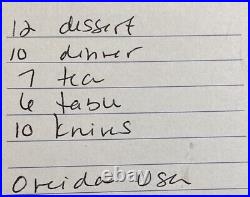 12 dessert
10 dinner
7 tea
6 table
10 knives
Oneida USA